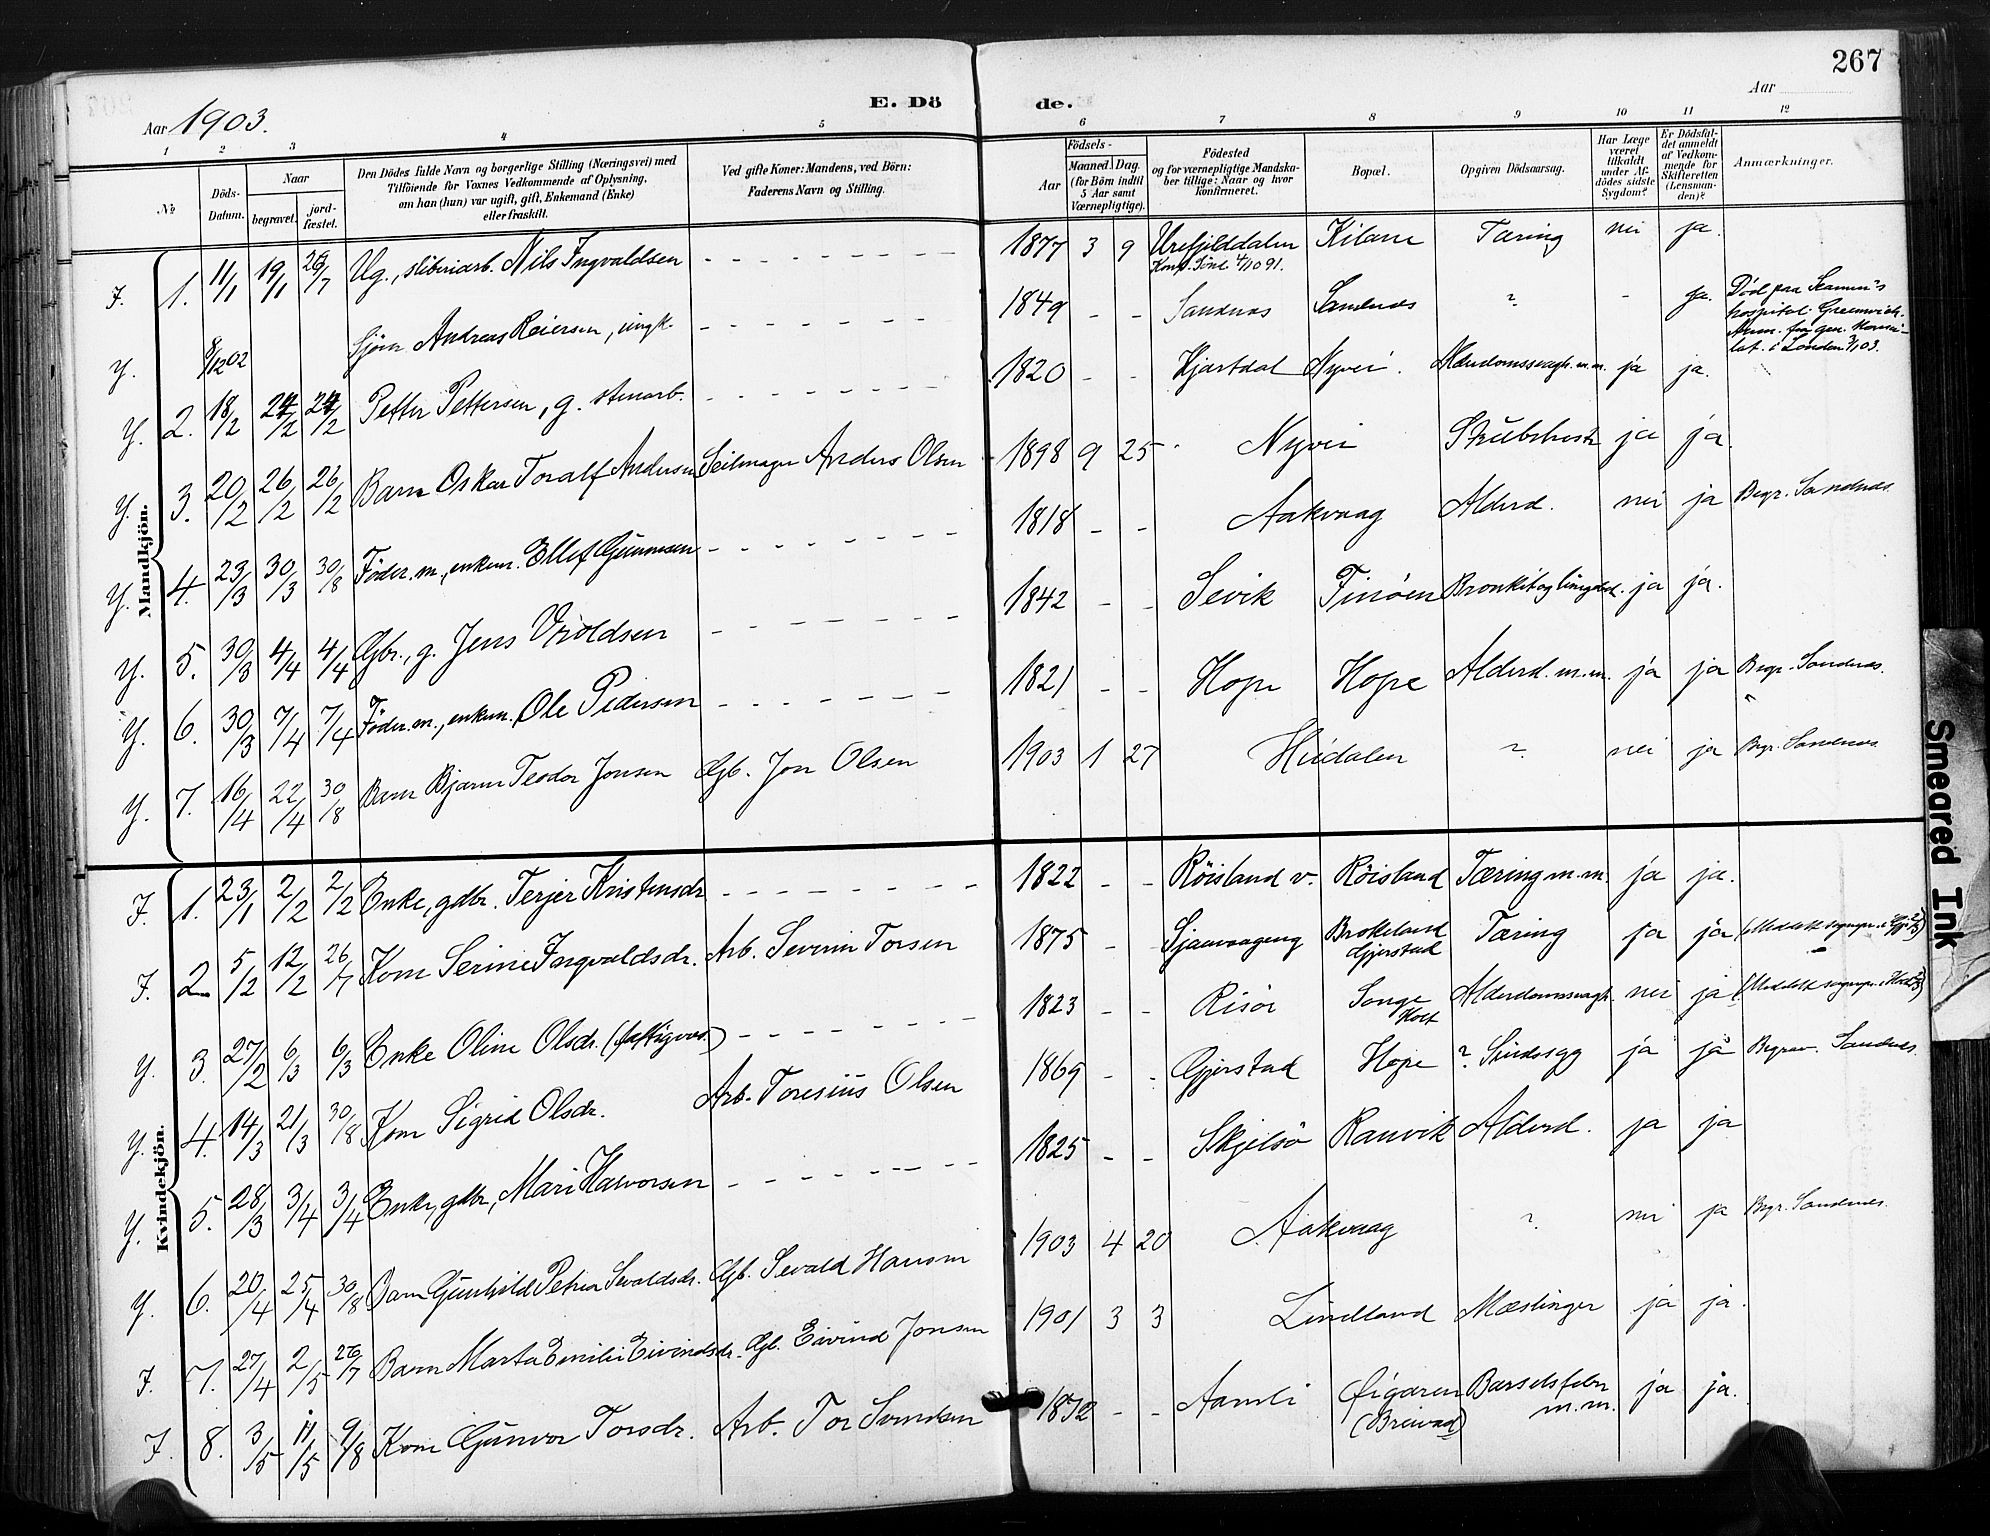 267
Aar 1903.
E. Dö de.
Aar
1 2 3 4 5 6 7 8 9 10 11 12
No
Döds-Datum.
Naar
begravet.
jord-fæstet.
Den Dödes fulde Navn og borgerlige Stilling (Næringsvei) med
Tilföiende for Voxnes Vedkommende af Oplysning,
om han (hun) var ugift, gift, Enkemand (Enke)
eller fraskilt.
Ved gifte Koner: Mandens, ved Börn:
Faderens Navn og Stilling.
Födsels-
Aar
Maaned. Dag.
(for Börn indtil
5 Aar samt
Værnepligtige).
Födested
og for værnepligtige Mandska-
ber tillige: Naar og hvor
konfirmeret.
Bopæl.
Opgiven Dödsaarsag.
Har Læge
været
tilkaldt
under Af-
dödes sidste
Sygdom?
Er Dödsfal-
det anmeldt
af Vedkom-
mende for
Skifteretten
(Lensman-
den)?
Anmærkninger.
Mandkjön.
F. 1. 11/1 19/1 26/7 Ug., sliberiarb. Nils Ingvaldsen - - - 1877 3 9 Urefjelddalen Kilane Tæring nei ja.
Konf. Sönd. 4/10 91.
Y. 8/12 02 Sjöm. Andreas Reiersen, ungk. - - - 1849 - - Sandnæs Sandnæs ? - ja. Död paa Seamen's
hospital. Greenwich.
Anm. fra gen. Konsu-
lat. i London 3/1 03.
Y. 2. 18/2 24/2 24/2 Petter Pettersen, g. stenarb. - - - 1820 - - Hjartdal Nyvei. Alderdomssvagh. m.m. ja ja.
Y. 3. 20/2 26/2 26/2 Barn Oskar Toralf Andersen Seilmager Anders Olsen 1898 9 25 Nyvei Strubehoste ja ja.
Y. 4. 23/3 30/3 30/8 Föder.m., enkem. Ellef Gunnersen - - - 1818 - - Aakvaag Alderd. nei ja Begr. Sandnæs.
Y. 5. 30/3 4/4 4/4 Gbr., g. Jens Vroldsen - - - 1842 - - Sevik Finöen Bronkit og lungebet. ja ja.
Y. 6. 30/3 7/4 7/4 Föder.m., enkem. Ole Pedersen - - - 1821 - - Hope Hope Alderd. m.m. ja ja Begr. Sandnæs.
Y. 7. 16/4 22/4 30/8 Barn Bjarne Teodor Jonsen Gb. Jon Olsen 1903 1 27 Hüdalen ? nei ja Begr. Sandnæs
Kvindekjön.
F. 1. 23/1 2/2 2/2 Enke, gdbr. Terjer Kristensdr - - - 1822 - - Röisland v. Röisland Tæring m.m. ja ja.
F. 2 5/2 12/2 26/7 Kone Serine Ingvaldsdr. Arb. Severin Torsen 1875 - Sjauvaageng Brokeland Gjerstad Tæring ja ja
Y. 3. 27/2 6/3 6/3 Enke Oline Olsdr. (fattigvæs.) - - - 1823 Risör Songe Holt Alderdomssvagh. nei ja
Y. 4. 14/3 21/3 30/8 Kone Sigrid Olsdr. Arb. Toresius Olsen 1869 - - Gjerstad Hope ? Sindssyg ja ja Begrav. Sandnæs.
Y. 5. 28/3 3/4 3/4 Enke, gdbr, Mari Halvorsen - - - 1825 - - Skjelsö Ranvik Alderd. ja ja
Y. 6. 20/4 25/4 30/8 Barn Gunhild Petra Sevaldsdr. Gb. Sevald Hansen 1903 4 20 Aakvaag ? nei ja Begr. Sandnæs.
F. 7. 27/4 2/5 26/7 Barn Marta Emilie Eivindsdr. Gb. Eivind Jonsen 1901 3 3 Lindland Mæslinger ja ja.
F. 8. 3/5 11/5 9/8 Kone Gunvor Torsdr. Arb. Tor Svendsen 1872 - - Aamli Öigaren (Breivad) Barselsfeber m.m. ja ja.
Smeared Ink